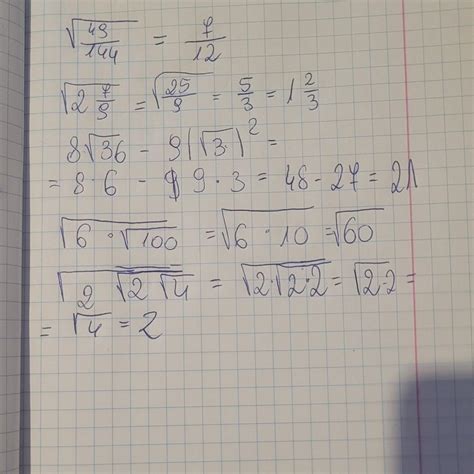 √(49/144) = 7/12
√(2 7/9) = √(25/9) = 5/3 = 1 2/3
8√36 - 9(√3)² =
= 8·6 - 9·3 = 48 - 27 = 21
√(6·√100) = √(6·10) = √60
√(2√(2√4)) = √(2·√(2·2)) = √(2·2) =
= √4 = 2